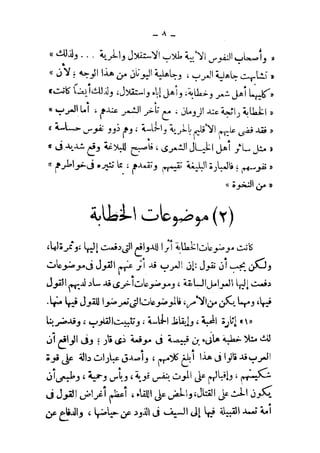 — ٨ —
« وأصحاب النفوس الأبية طلاب الاستقلال والحرية . . . ولذلك »
« تشابهت جاهلية العرب ، وجاهلية اليونان من هذا الوجه ؛ لأن »
« كليهما أهل شعر وخطابة، وأهل إباء واستقلال، ولذلك أيضا كانت »
« الخطابة رائجة عند الرومان ، مع تأخر الشعر عندهم ، أما العرب »
« فقد قضى عليهم الأقليم بالحرية والحماسة ، وهم ذوو نفوس حساسة »
« مثل سائر أهل الخيال الشعرى ، فأصبح للبلاغة وقع شديد فى »
« نفوسهم ؛ فالعبارة البليغة تقيمهم وتقعدهم ، بما تثيره فى خواطرهم »
« من النخوة »
(٢) موضوعات الخطابة
كانت موضوعات الخطابة أثرا للدوافع التى دفعت إليها ، وثمرة لها،
ولكن يجب أن نقول : إن العرب قد أثر عنهم القول فى موضوعات
دفعت إليها العوامل السابقة ، وموضوعات أخرى قد ساد لديهم القول
فيها، ومهما يكن من الأمر، فالموضوعات التى تعرضوا للقول فيها منها .
«١» إثارة المحبة ، وإيقاظ الحماسة ، وتثبيت القلوب ، وقد ضربنا
لك مثلا خطبة هانىء بن قبيصة فى موقعة ذى قار ؛ وفى الواقع أن
العرب قد قالوا فى هذا أبلغ كلامهم ، وأصدق عبارات دالة على قوة
شكيمتهم ، وإقبالهم على الموت بنفس قوية ، وبأس وحمية ، وطبيعى أن
يكون الحث على القتال، والحض على اللقاء ، أعظم أغراض القول فى
أمة تعمد القبيلة فيها إلى السيف فى الذود عن حياضها ، والدفاع عن